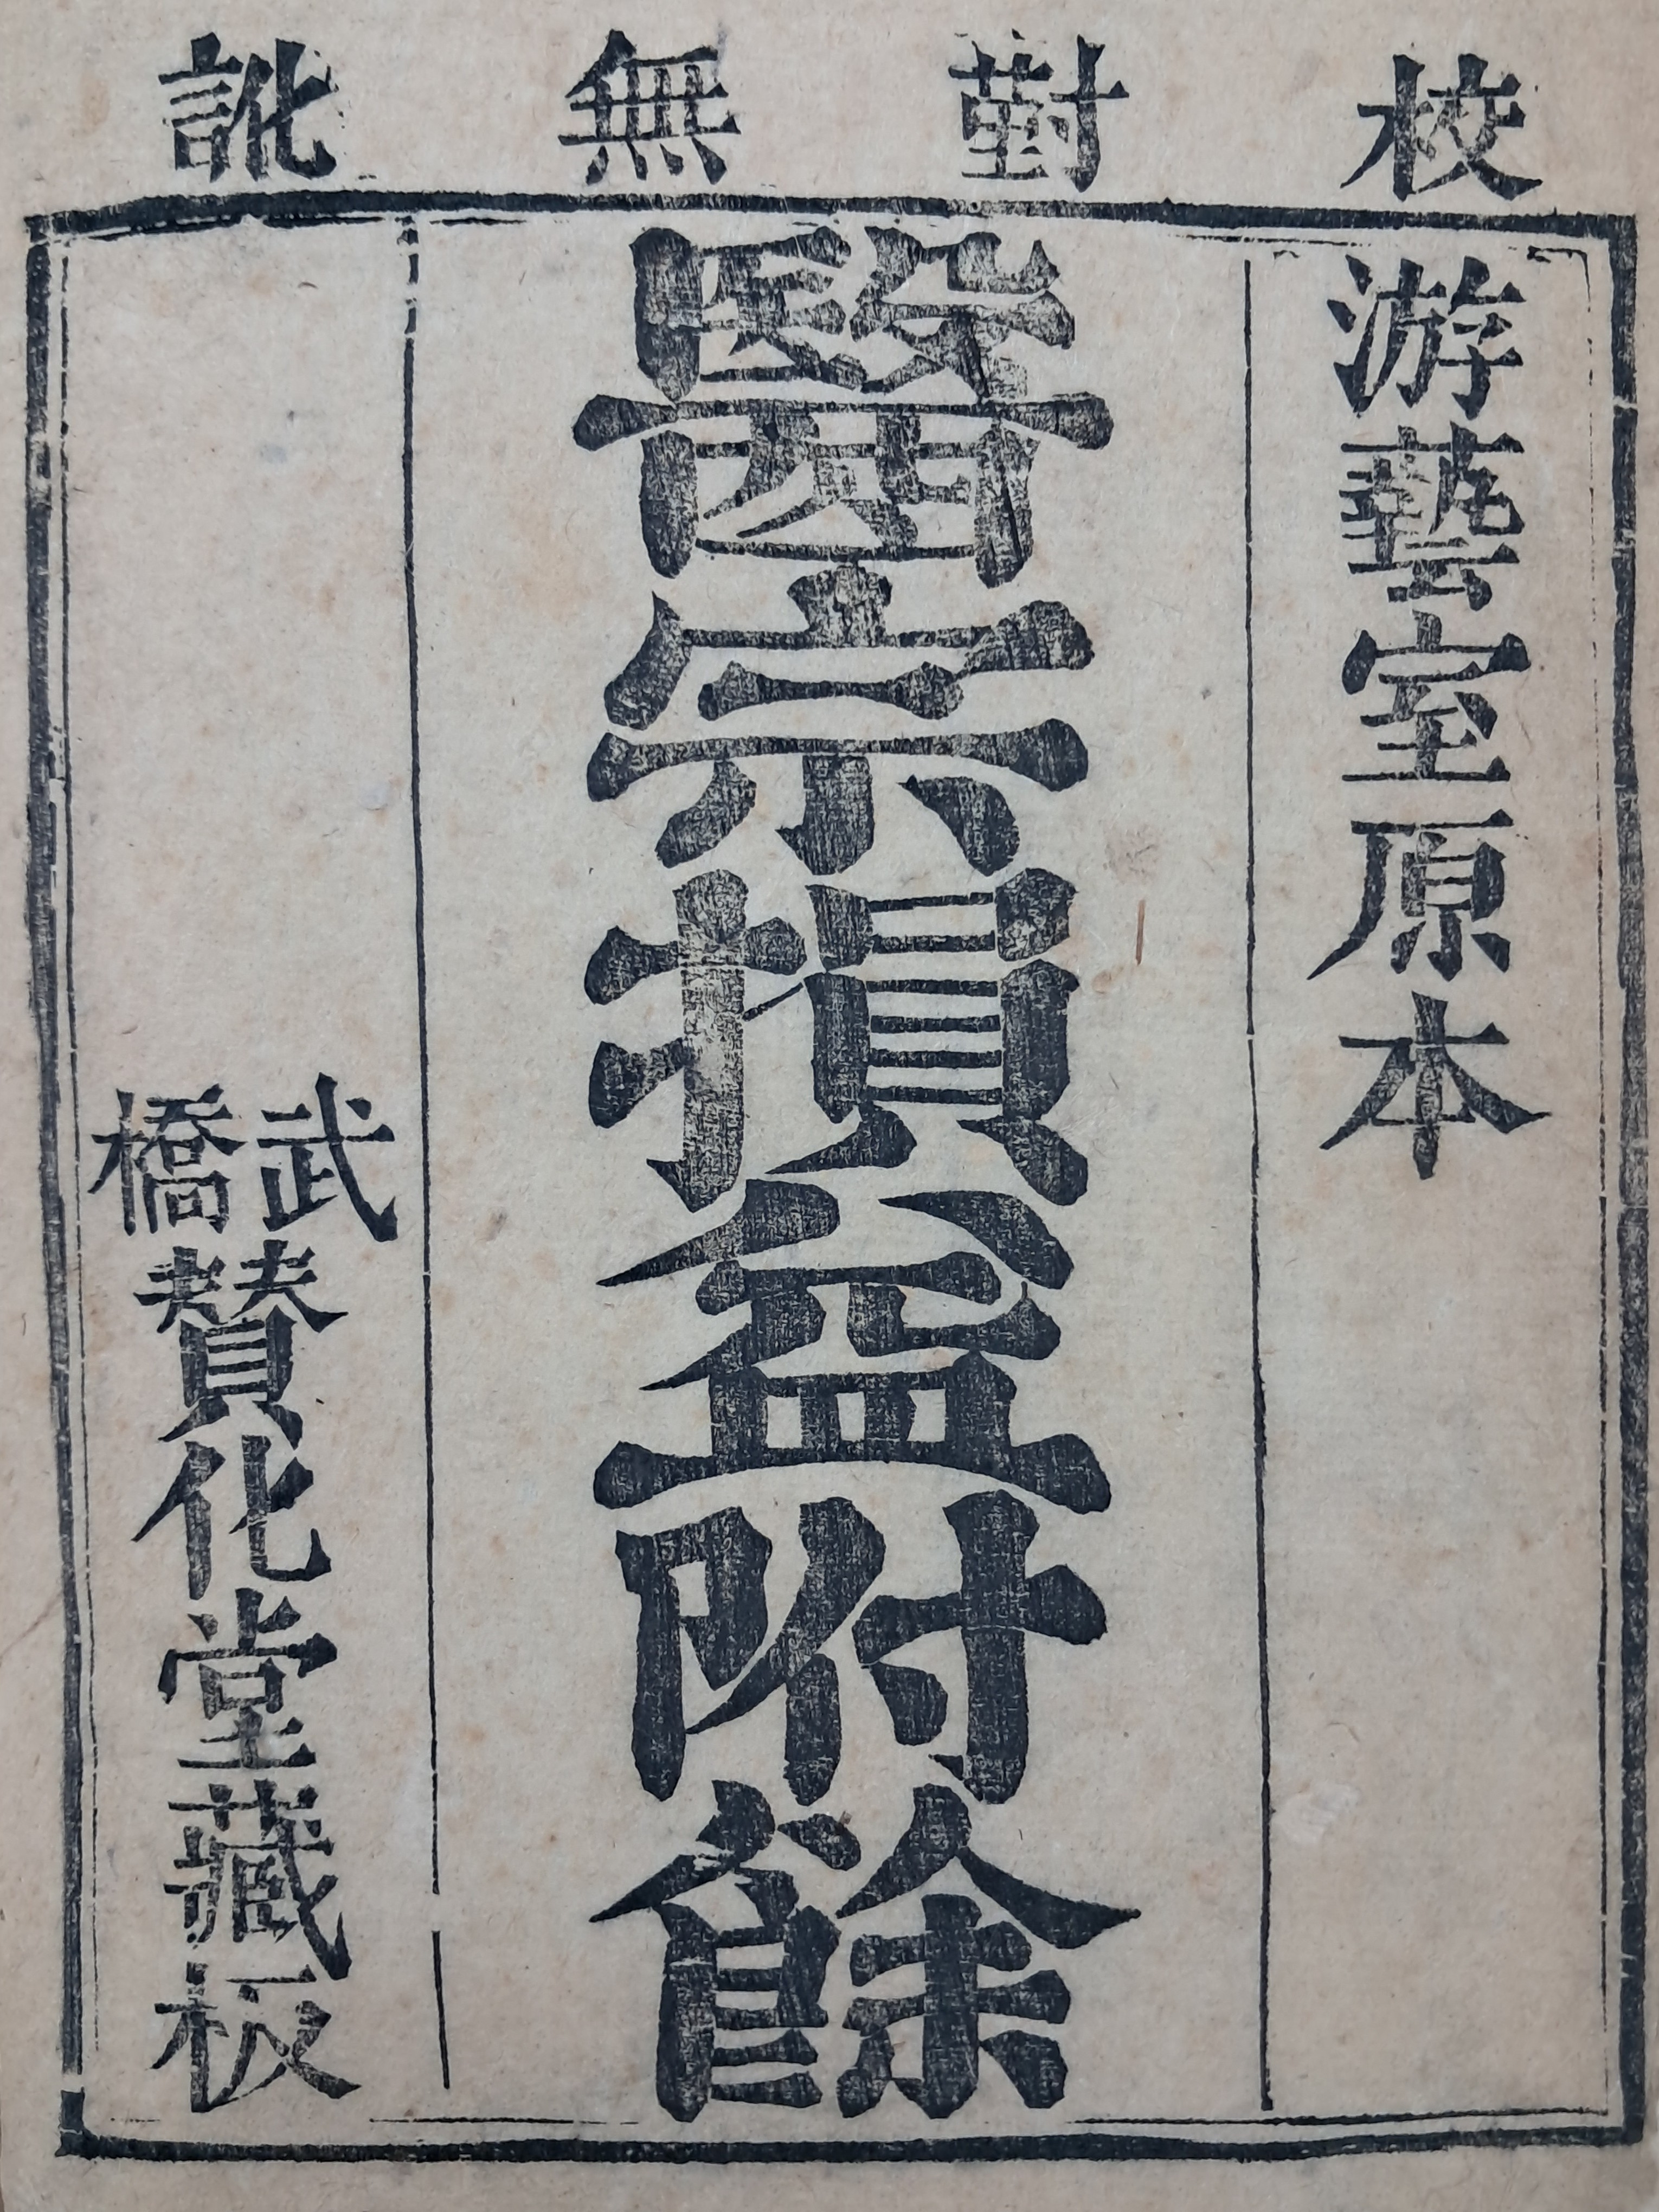 校對無訛
游藝室原本
醫宗損益附餘
武橋賛化堂藏板